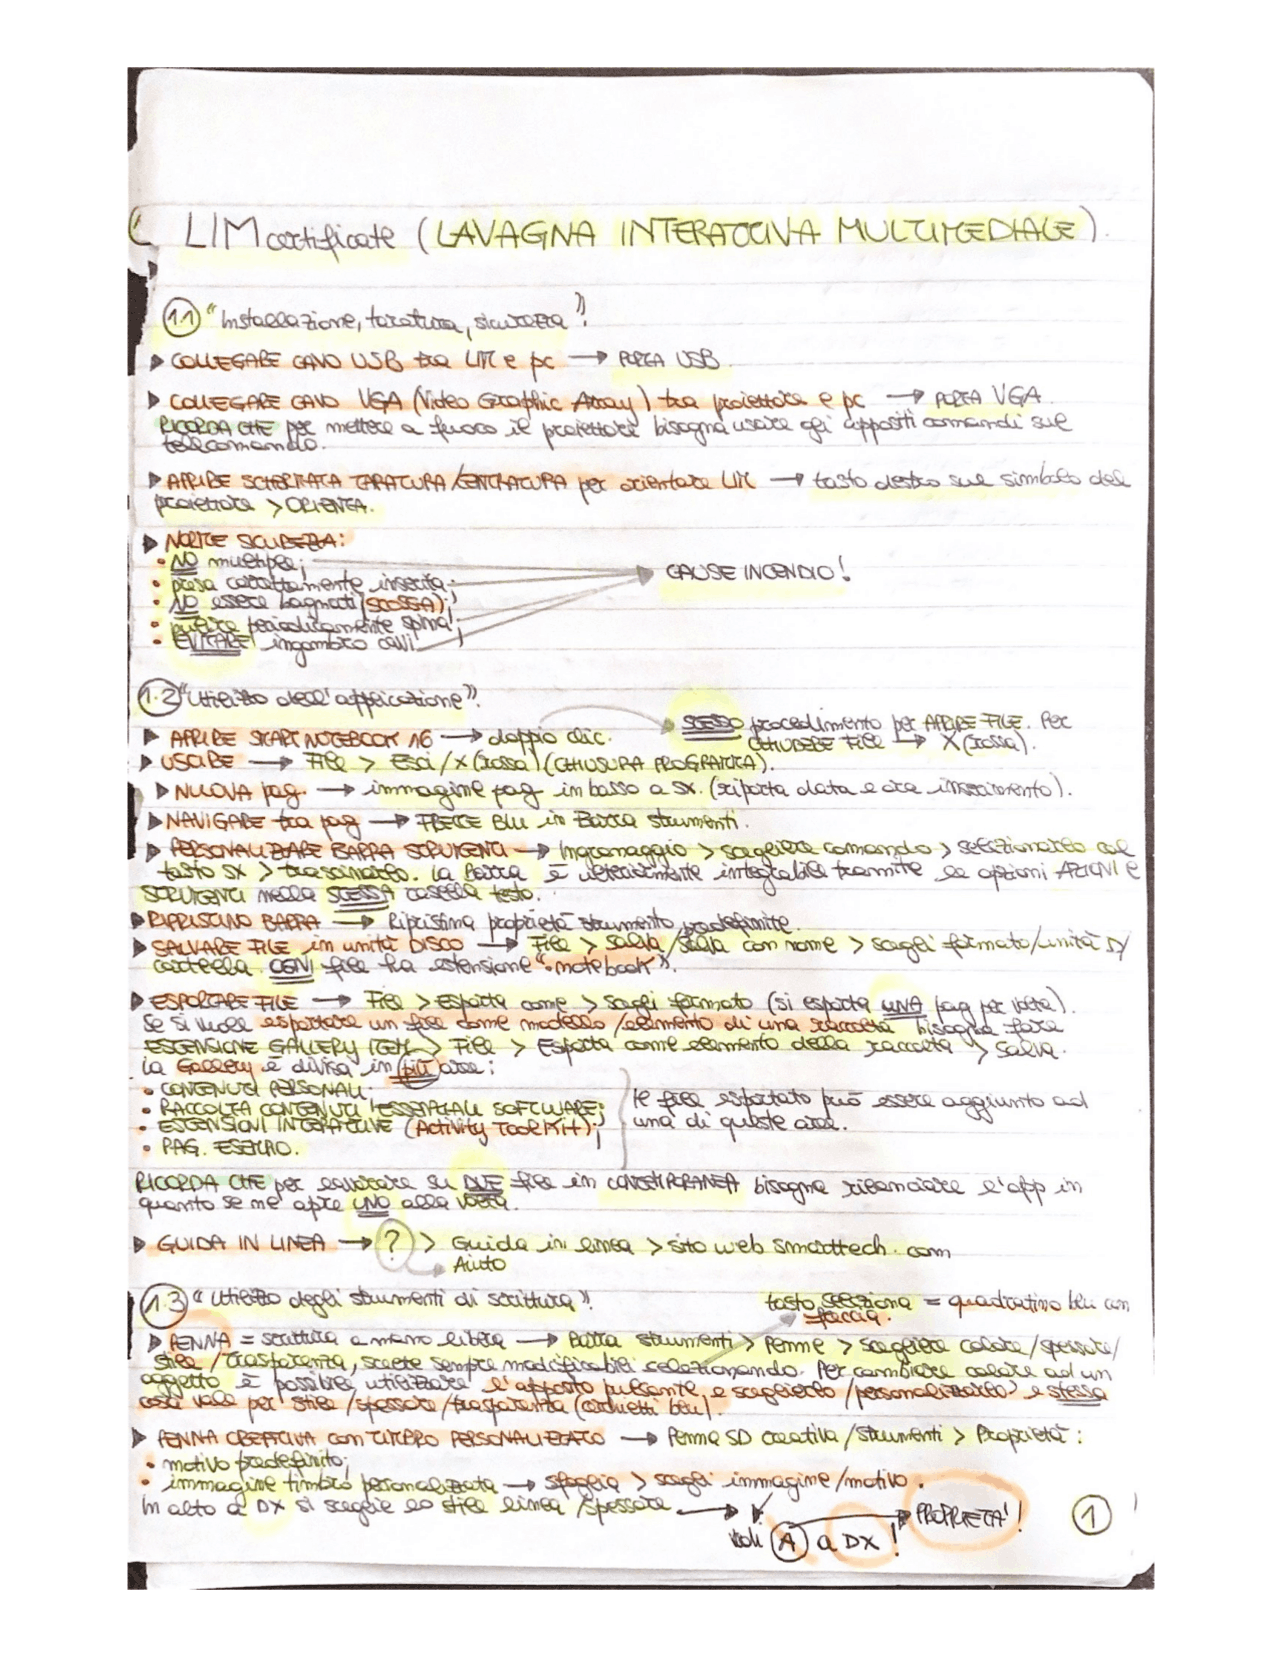 LIM certificate (LAVAGNA INTERATTIVA MULTIMEDIALE).
1.1 "Installazione, taratura, sicurezza".
▶ COLLEGARE CAVO USB tra LIM e pc → PORTA USB.
▶ COLLEGARE CAVO VGA (Video Graphic Array) tra proiettore e pc → PORTA VGA.
RICORDA CHE per mettere a fuoco il proiettore bisogna usare gli appositi comandi sul
telecomando.
▶ APRIRE SCHERMATA TARATURA/CENTRATURA per orientare LIM → tasto destro sul simbolo del
proiettore > ORIENTA.
▶ NORME SICUREZZA:
• NO multipla;
• presa correttamente inserita;
• NO essere bagnati (SCOSSA);
• pulire periodicamente spina;
• EVITARE ingombro cavi.
CAUSE INCENDIO!
1.2 "Utilizzo dell'applicazione".
▶ APRIRE SMART NOTEBOOK 16 → doppio clic.
STESSO procedimento per APRIRE FILE. Per
CHIUDERE FILE → X (rossa).
▶ USCIRE → File > Esci / X (rossa) (CHIUSURA PROGRAMMA).
▶ NUOVA pag. → immagine pag in basso a sx. (riporta data e ora inserimento).
▶ NAVIGARE tra pag → FRECCE BLU in Barra strumenti.
▶ PERSONALIZZARE BARRA STRUMENTI → Ingranaggio > scegliere comando > selezionarlo col
tasto SX > trascinarlo. La barra è ulteriormente integrabile tramite le opzioni AZIONI e
STRUMENTI nella STESSA casella testo.
▶ RIPRISTINO BARRA → Ripristina proprietà strumento predefinite.
▶ SALVARE FILE in unità DISCO → File > Salva/Salva con nome > scegli formato/unità D/
cartella. OGNI file ha estensione ".notebook".
▶ ESPORTARE FILE → File > Esporta come > scegli formato (si esporta UNA pag per volta).
Se si vuole esportare un file come modello/elemento di una raccolta bisogna fare
ESTENSIONE GALLERY ITEM > File > Esporta come elemento della raccolta > Salva.
La Gallery è divisa in più aree:
• CONTENUTI PERSONALI;
• RACCOLTA CONTENUTI ESSENZIALI SOFTWARE;
• ESTENSIONI INTERATTIVE (Activity Toolkit);
• PAG. ESEMPIO.
Il file esportato può essere aggiunto ad
una di queste aree.
RICORDA CHE per lavorare su DUE file in CONTEMPORANEA bisogna rilanciare l'app in
quanto se ne apre UNO alla volta.
▶ GUIDA IN LINEA → ? > Guida in linea > sito web smarttech.com
Aiuto
1.3 "Utilizzo degli strumenti di scrittura".
tasto seleziona = quadratino blu con
freccia.
▶ PENNA = scrittura a mano libera → Barra strumenti > Penne > scegliere colore/spessore/
stile/trasparenza, scelte sempre modificabili selezionando. Per cambiare colore ad un
oggetto è possibile utilizzare l'apposto pulsante e sceglierlo/personalizzarlo e stessa
cosa vale per stile/spessore/trasparenza (cerchietti blu).
▶ PENNA CREATIVA con TIMBRO PERSONALIZZATO → Penna SD creativa/Strumenti > Proprietà:
• motivo predefinito;
• immagine timbro personalizzata → sfoglia > scegli immagine/motivo.
In alto a DX si sceglie lo stile linea/spessore →
A a DX! → PROPRIETA'!
1